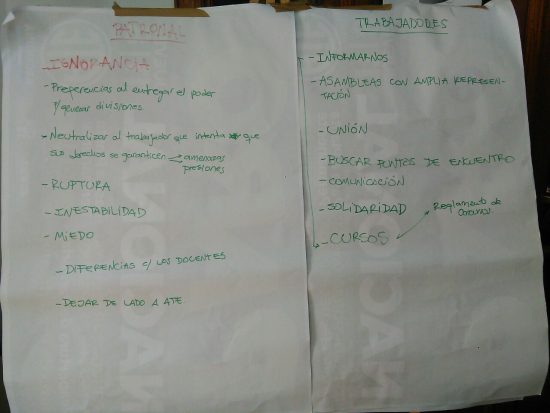 PATRONAL
-IGNORANCIA
-Preferencias al entregar el poder
p/generar divisiones.
-Neutralizar al trabajador que intenta que
sus derechos se garanticen → amenazas
presiones
-RUPTURA
-INESTABILIDAD
-MIEDO
-DIFERENCIAS c/ LOS DOCENTES
-DEJAR DE LADO A ATE.
TRABAJADORES
-INFORMARNOS
-ASAMBLEAS CON AMPLIA REPRESEN-
TACIÓN
-UNIÓN
-BUSCAR PUNTOS DE ENCUENTRO
-COMUNICACIÓN
-SOLIDARIDAD
Reglamento de
Concurso
-CURSOS